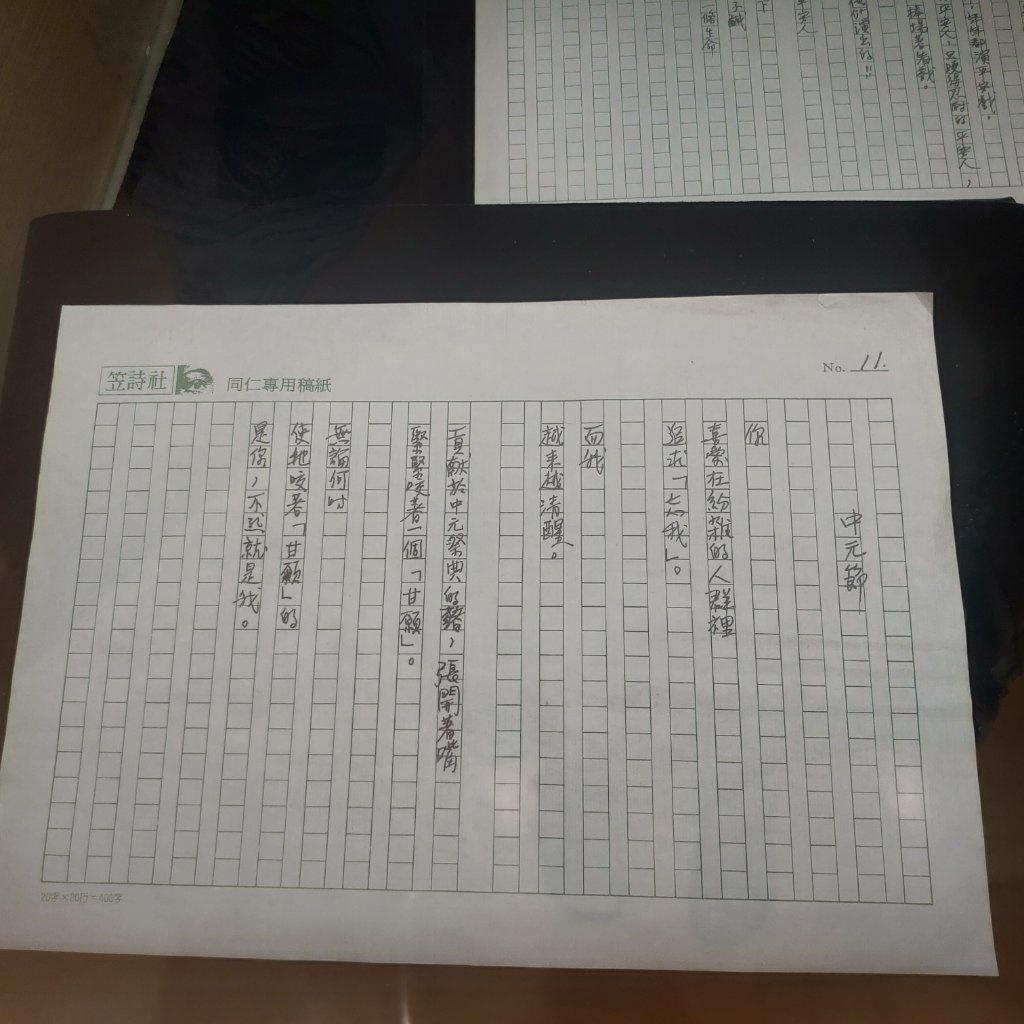 年年都演平安戲，
平安人，只曉得忍耐的平安人，
捧場著看戲。
演出的!!
平安人
下
一條生命
笠詩社
同仁專用稿紙
No. 11.
中元節
你
喜愛在紛雜的人群裡
追求「忘我」。
而我
越來越清醒。
貢獻於中元祭典的豬，張開著嘴
緊緊咬著一個「甘願」。
無論何時
使牠咬著「甘願」的
是你，不然就是我。
20字×20行=400字